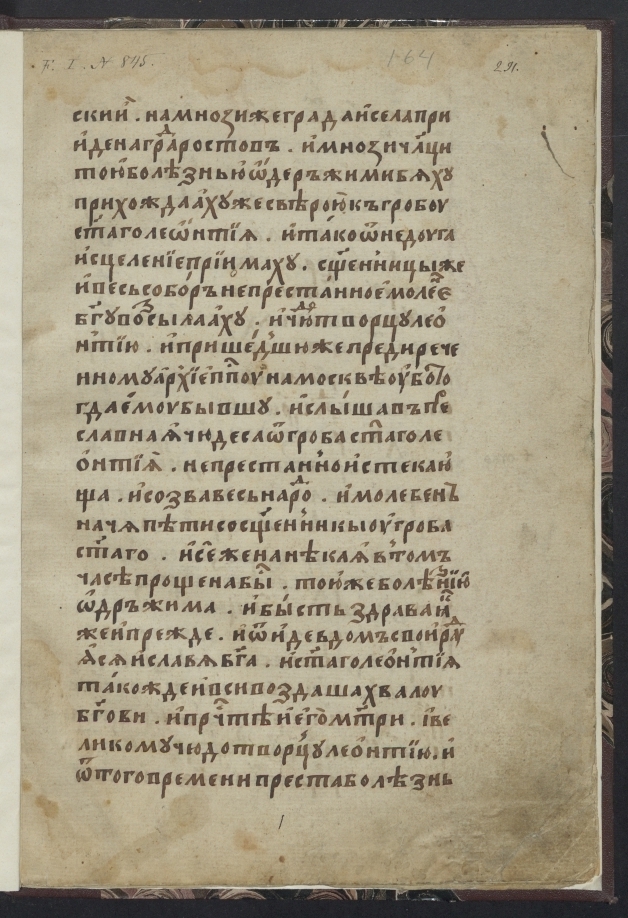 F. I. N 845.
164
291.
скии҆ . на мнозиже града и҆ села при
и҆де на гра́д ростовъ . и҆мнози ча́щи
тою҆ болѣ́знью ѿдержими бяху
прихождаа́хуже свѣрою҆ къ гробоу
ст҃аго леѡ́нтїя . и҆ та́ко ѿ недоуга
и҆сцеленїе прїи́маху . сщ҃е́нницыже
и҆весь собо́ръ непреста́нное молє́нїе
бг҃у возсыла́аху . и҆ чюдотворцу лео́
нтїю . и҆ прише́дшюже преди рече
нному а҆рхїеп҃поу на москвѣ оу҆бо то
гда е҆мо убывшу . и҆слы́шавъ пре
славная҆ чюдеса ѿ гроба ст҃аго ле
о́нтїя . непреста́нно и҆стекаю҆
ща . и҆созва весь наро́д . и҆молебенъ
нача пѣ́ти со сщ҃е́нники оу҆ гроба
ст҃аго . и҆ се́ жена нѣ́кая в то́мъ
ча́сѣ проще́на бы́ . тою҆же болѣ́знїю
ѡ҆држима . и҆ бы́сть здрава ꙗ҆ко
же и҆ прежде . и҆ ѿиде в домъ свои ра́ду
ꙗ҆ся и҆ славя бг҃а . и҆ ст҃аго лео́нтїя
та́кожде и҆ вси воздаша хвалоу
бг҃ови . и҆ прч҃тѣи е҆го мт҃ри . і҆ ве
ликому чюдотворцу лео́нтїю . и҆
ѿ того времени преста болѣ́знь